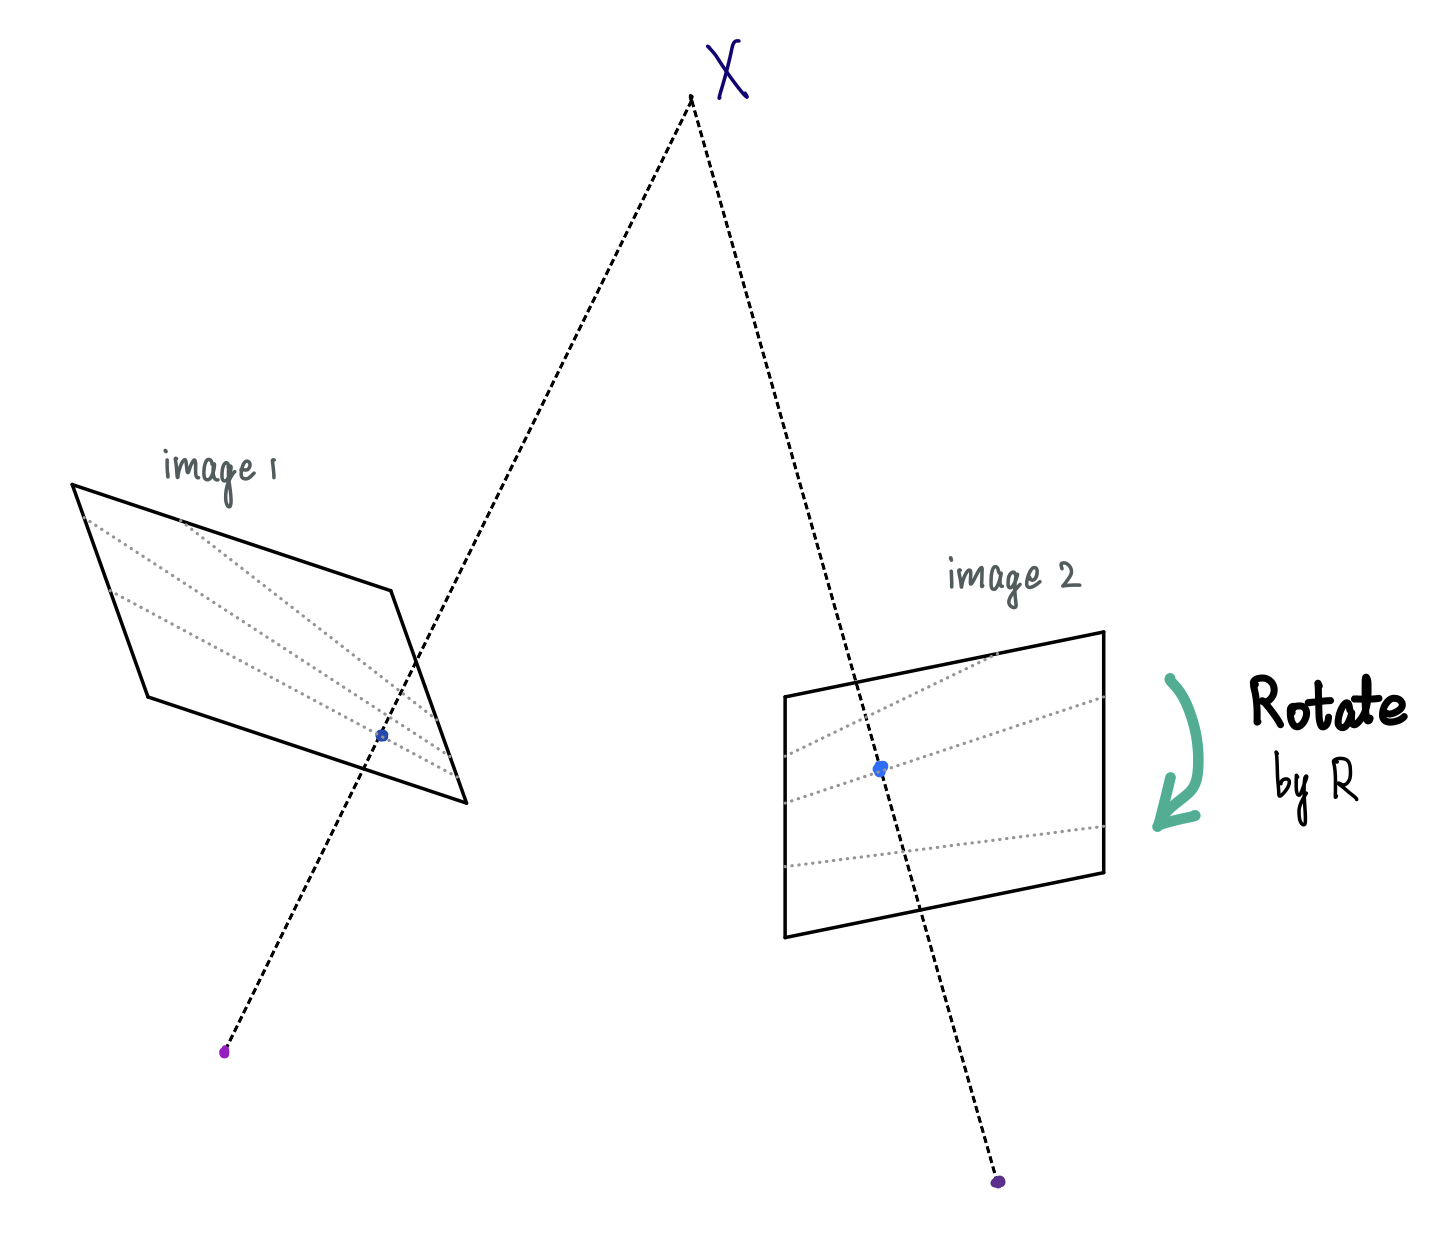 X
image 1
image 2
Rotate
by R